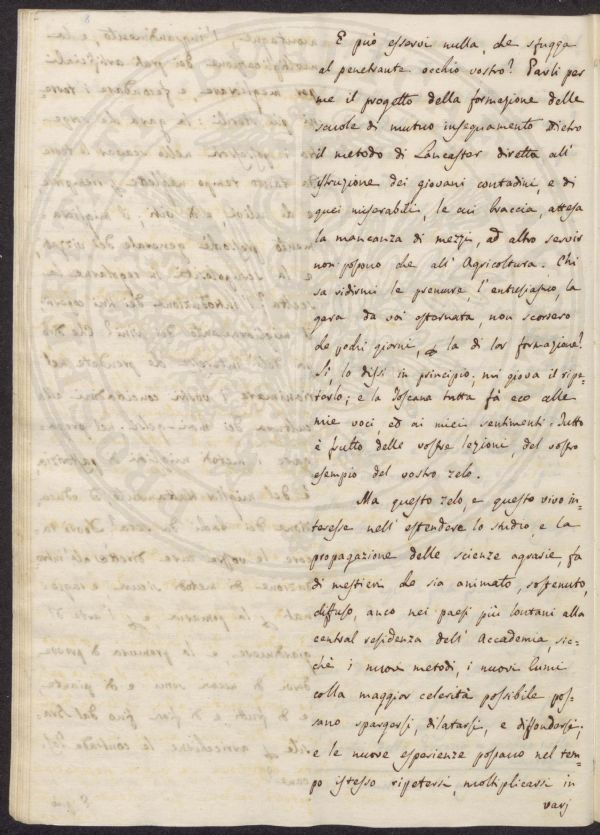 8
E può esservi nulla, che sfugga
al penetrante occhio vostro? Parli per
me il progetto della formazione delle
scuole di mutuo insegnamento dietro
il metodo di Lancaster diretta all'
istruzione dei giovani contadini, e di
quei miserabili, le cui braccia, attesa
la mancanza di mezzi, ad altro servir
non possono che all' Agricoltura. Chi
sa ridirmi le premure, l'entusiasmo, la
gara da voi esternata, non scorsero
che pochi giorni, la di lor formazione?
Sì, lo dissi in principio, mi giova il ripe=
terlo; e la Toscana tutta fà eco alle
mie voci ed ai miei sentimenti. Tutto
è frutto delle vostre lezioni, del vostro
esempio del vostro zelo.
Ma questo zelo, e questo vivo in=
teresse nell' estendere lo studio, e la
propagazione delle scienze agrarie, fa
di mestieri che sia animato, sostenuto,
diffuso, anco nei paesi più lontani alla
central residenza dell' Accademia, sic=
chè i nuovi metodi, i nuovi lumi
colla maggior celerità possibile pos=
sano spargersi, dilatarsi, e diffondersi;
e le nuove esperienze possano nel tem=
po istesso ripetersi, moltiplicarsi in
varj